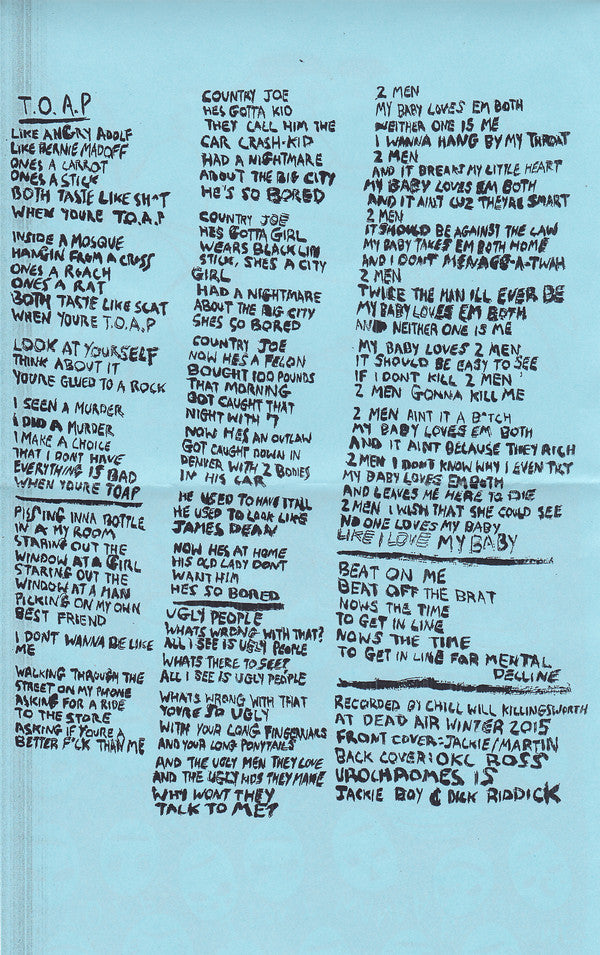 T.O.A.P
LIKE ANGRY ADOLF
LIKE BERNIE MADOFF
ONES A CARROT
ONES A STICK
BOTH TASTE LIKE SH*T
WHEN YOURE T.O.A.P
INSIDE A MOSQUE
HANGIN FROM A CROSS
ONES A ROACH
ONES A RAT
BOTH TASTE LIKE SCAT
WHEN YOURE T.O.A.P
LOOK AT YOURSELF
THINK ABOUT IT
YOURE GLUED TO A ROCK
I SEEN A MURDER
I DID A MURDER
I MAKE A CHOICE
THAT I DONT HAVE
EVERYTHING IS BAD
WHEN YOURE TOAP
PISSING INNA BOTTLE
IN A MY ROOM
STARING OUT THE
WINDOW AT A GIRL
STARING OUT THE
WINDOW AT A MAN
PICKING ON MY OWN
BEST FRIEND
I DONT WANNA BE LIKE
ME
WALKING THROUGH THE
STREET ON MY PHONE
ASKING FOR A RIDE
TO THE STORE
ASKING IF YOURE A
BETTER F*CK THAN ME
COUNTRY JOE
HES GOTTA KID
THEY CALL HIM THE
CAR CRASH-KID
HAD A NIGHTMARE
ABOUT THE BIG CITY
HE'S SO BORED
COUNTRY JOE
HES GOTTA GIRL
WEARS BLACK LIN
STICK, SHES A CITY
GIRL
HAD A NIGHTMARE
ABOUT THE BIG CITY
SHES SO BORED
COUNTRY JOE
NOW HES A FELON
BOUGHT 100 POUNDS
THAT MORNING
GOT CAUGHT THAT
NIGHT WITH 7
NOW HES AN OUTLAW
GOT CAUGHT DOWN IN
DENVER WITH 2 BODIES
IN HIS CAR
HE USED TO HAVE IT ALL
HE USED TO LOOK LIKE
JAMES DEAN
NOW HES AT HOME
HIS OLD LADY DONT
WANT HIM
HES SO BORED
UGLY PEOPLE
WHATS WRONG WITH THAT?
ALL I SEE IS UGLY PEOPLE
WHATS THERE TO SEE?
ALL I SEE IS UGLY PEOPLE
WHATS WRONG WITH THAT
YOURE SO UGLY
WITH YOUR LONG FINGERNAILS
AND YOUR LONG PONYTAILS
AND THE UGLY MEN THEY LOVE
AND THE UGLY KIDS THEY MAKE
WHY WONT THEY
TALK TO ME?
2 MEN
MY BABY LOVES EM BOTH
NEITHER ONE IS ME
I WANNA HANG BY MY THROAT
2 MEN
AND IT BREAKS MY LITTLE HEART
MY BABY LOVES EM BOTH
AND IT AINT CUZ THEYRE SMART
2 MEN
IT SHOULD BE AGAINST THE LAW
MY BABY TAKES EM BOTH HOME
AND I DONT MENAGE-A-TWAH
2 MEN
TWICE THE MAN ILL EVER BE
MY BABY LOVES EM BOTH
AND NEITHER ONE IS ME
MY BABY LOVES 2 MEN
IT SHOULD BE EASY TO SEE
IF I DONT KILL 2 MEN
2 MEN GONNA KILL ME
2 MEN AINT IT A B*TCH
MY BABY LOVES EM BOTH
AND IT AINT BECAUSE THEY RICH
2 MEN I DONT KNOW WHY I EVEN TRY
MY BABY LOVES EM BOTH
AND LEAVES ME HERE TO DIE
2 MEN I WISH THAT SHE COULD SEE
NO ONE LOVES MY BABY
LIKE I LOVE MY BABY
BEAT ON ME
BEAT OFF THE BRAT
NOWS THE TIME
TO GET IN LINE
NOWS THE TIME
TO GET IN LINE FOR MENTAL
DECLINE
RECORDED BY CHILL WILL KILLINGSWORTH
AT DEAD AIR WINTER 2015
FRONT COVER: JACKIE/MARTIN
BACK COVER: OKC ROSS
UROCHROMES IS
JACKIE BOY & DICK RIDDICK